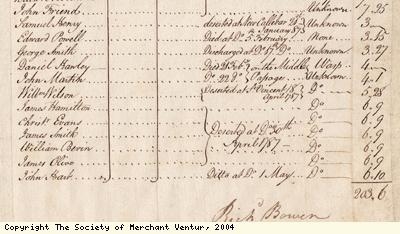 John Friend Unknown 1.25
Samuel Henry deserted at New Callebar 28 January 87 Unknown 3
Edward Powell Died at Do February None 3.15
George Smith Discharged at Do 17 Do Unknown 3.27
Daniel Hawley Died 21 on the Middle Wasp 4
John Martin Do 22 Do Passage Unknown 4.1
Willm Wilson Deserted at St Vincent April 1787 Do 5.28
James Hamilton Do 6.9
Christr Evans Do 6.9
James Smith Deserted at Do 30th Do 6.9
William Bevin April 1787 Do 6.9
James Olive Do 6.9
John Hart Ditto at Do 1 May Do 6.10
203.6
Richd Bowen
Copyright The Society of Merchant Ventur, 2004